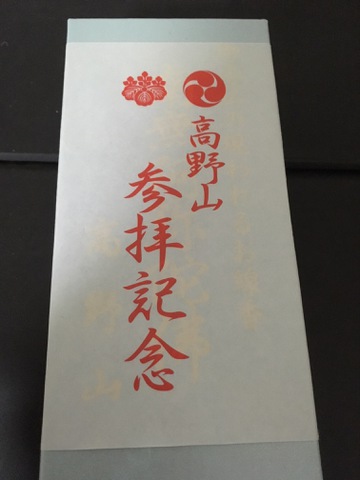 高野山
参拝記念